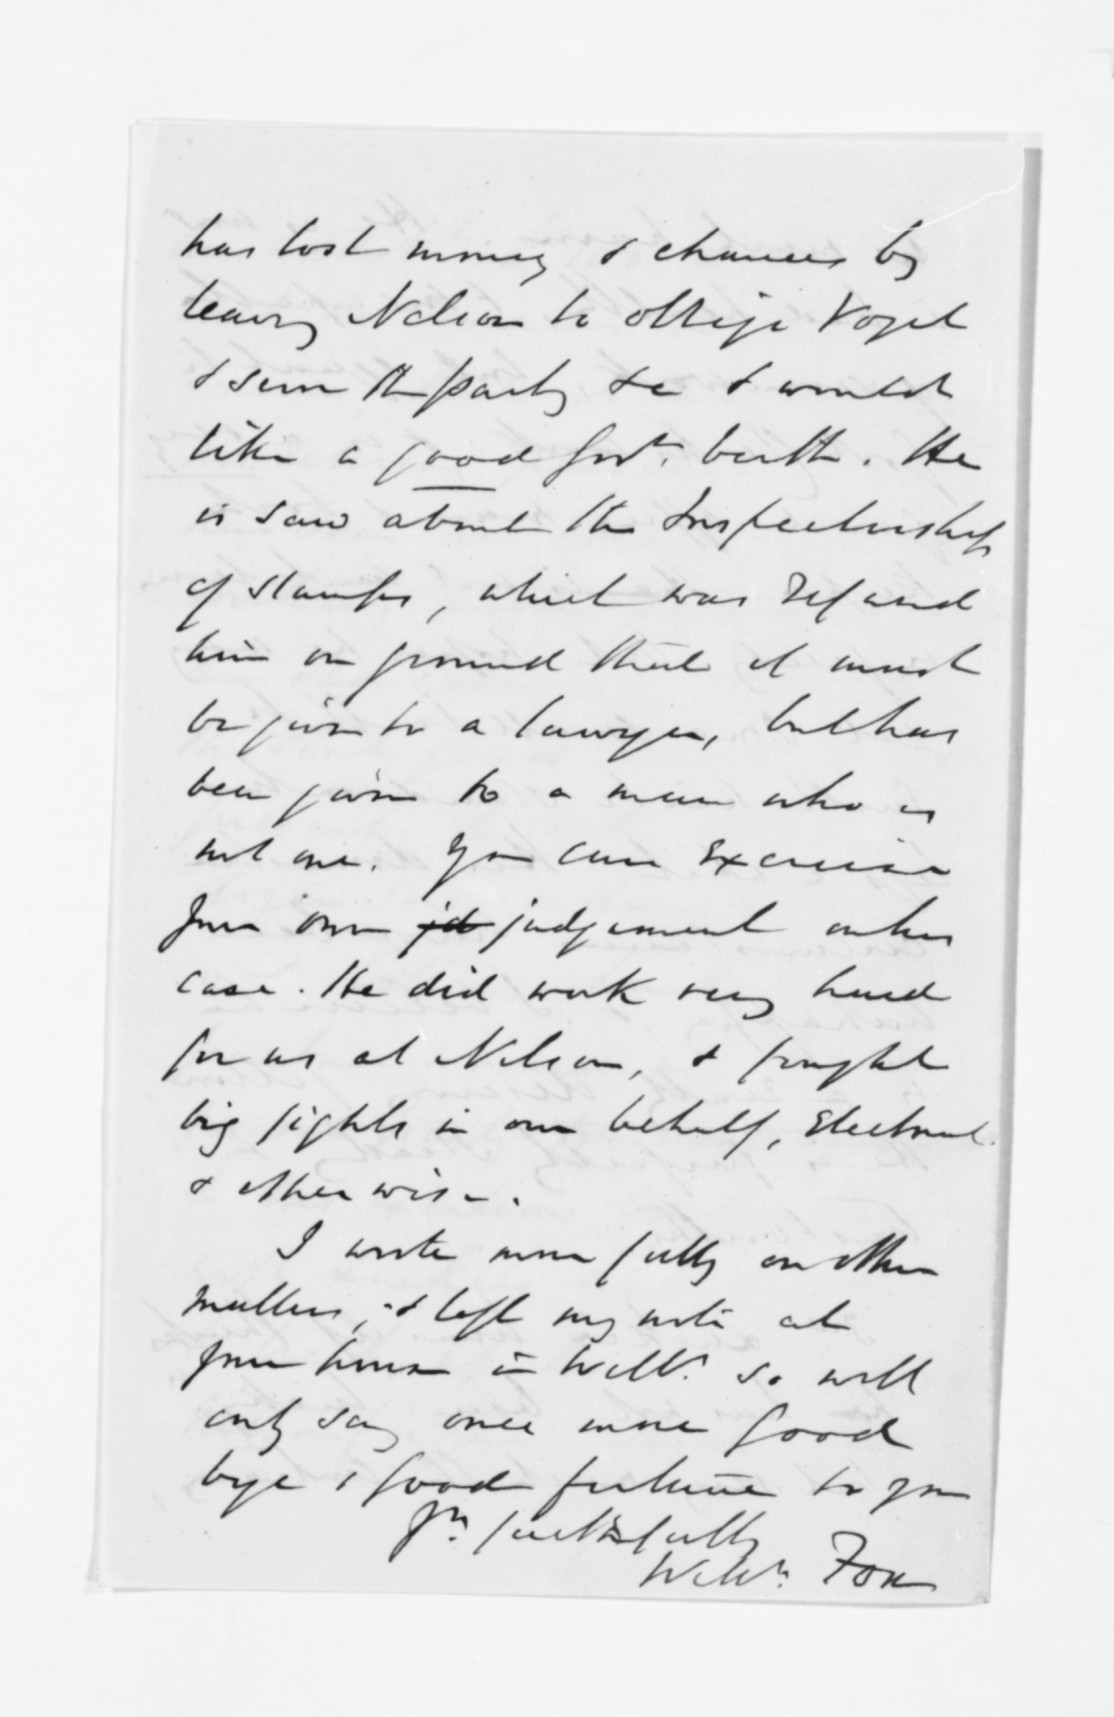 has lost money & chances by
leaving Nelson to oblige Vogel
& serve the party &c & would
like a good Govt. berth. He
is sore about the Inspectorship
of Stamps, which was refused
him on ground that it must
be given to a lawyer, but has
been given to a man who is
not one. You can exercise
your own jd judgement on his
case. He did work very hard
for us at Nelson, & fought
big fights in our behalf, Electoral
& otherwise.
I wrote more fully on other
matters, & left my note at
your house in Welln. so will
only say once more good
bye & good fortune to you
Yrs. faithfully
Willm. Fox